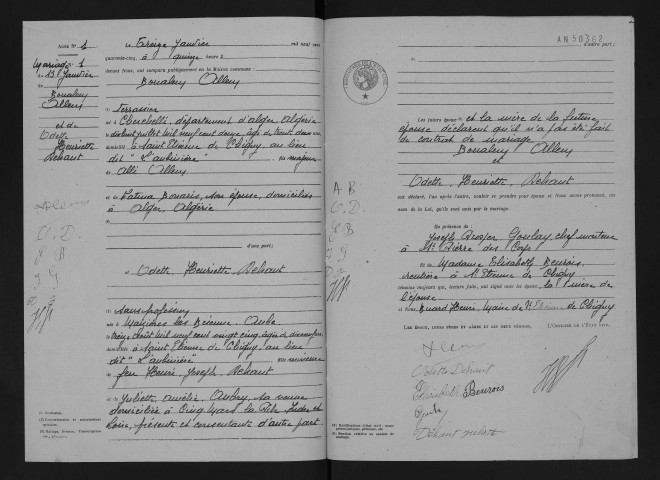 ACTE N° 1
Mariage 1
du 13 Janvier
Boualem
Allem
et de
Odette
Henriette
Dehaut
Le treize Janvier mil neuf cent
quarante-cinq, à quinze heures
devant Nous, ont comparu publiquement en la Maison commune :
Boualem Allem
(1) terrassier
né à Cherchell, département d'Alger Algérie
le dix huit juillet mil neuf cent douze, âgé de trente deux ans
domicilié à Saint Etienne de Chigny, au lieu
dit "L'aubinière" fils majeur
Alli Allem
et de Fatma Bouaris, son épouse, domiciliés
à Alger, Algérie
d'une part ;
et Odette Henriette Dehaut
(1) sans profession
née à Maizières les Brienne, Aube
le treize Août mil neuf cent vingt cinq, âgée de dix neuf ans
domiciliée à Saint Etienne de Chigny, au lieu
dit "L'aubinière" fille mineure
feu Henri Joseph Dehaut
et de Juliette Amélie Aubry, sa veuve
domiciliée à Cinq Mars la Pile, Indre et
Loire, présente et consentante d'autre part
AN 50362
d'autre part ;
Les futurs époux et la mère de la future
épouse déclarent qu'il n'a pas été fait
de contrat de mariage
Boualem Allem
et
Odette Henriette Dehaut
ont déclaré, l'un après l'autre, vouloir se prendre pour époux et Nous avons prononcé, au
nom de la Loi, qu'ils sont unis par le mariage.
En présence de
Joseph Goulay, chef monteur
à St Pierre des Corps
et de Madame Elisabeth Beurois,
rentière à St Etienne de Chigny
témoins majeurs qui, lecture faite, ont signé avec les époux, la mère de
l'épouse
et Nous, Huard Henri, Maire de St Etienne de Chigny
LES EPOUX, LEURS PÈRES ET MÈRES ET LES DEUX TÉMOINS, L'OFFICIER DE L'ÉTAT CIVIL.
Allem
Odette Dehaut
Elisabeth Beurois
Dehaut